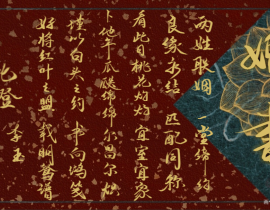 两姓联姻 一堂缔约
良缘永结 匹配同称
看此日桃花灼灼 宜室宜家
卜他年瓜瓞绵绵 尔昌尔炽
谨以白头之约 书向鸿笺
好将红叶之盟 载明鸳谱